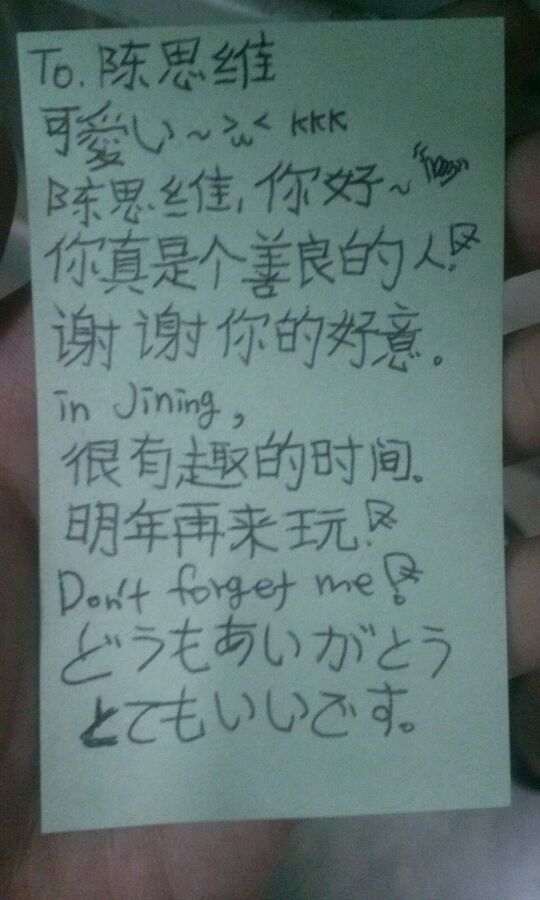 To. 陈思维
可愛い~ >w< KKK
陈思维, 你好~
你真是个善良的人!
谢谢你的好意。
in Jining,
很有趣的时间.
明年再来玩!
Don't forget me!
どうもあいがとう
とてもいいです。